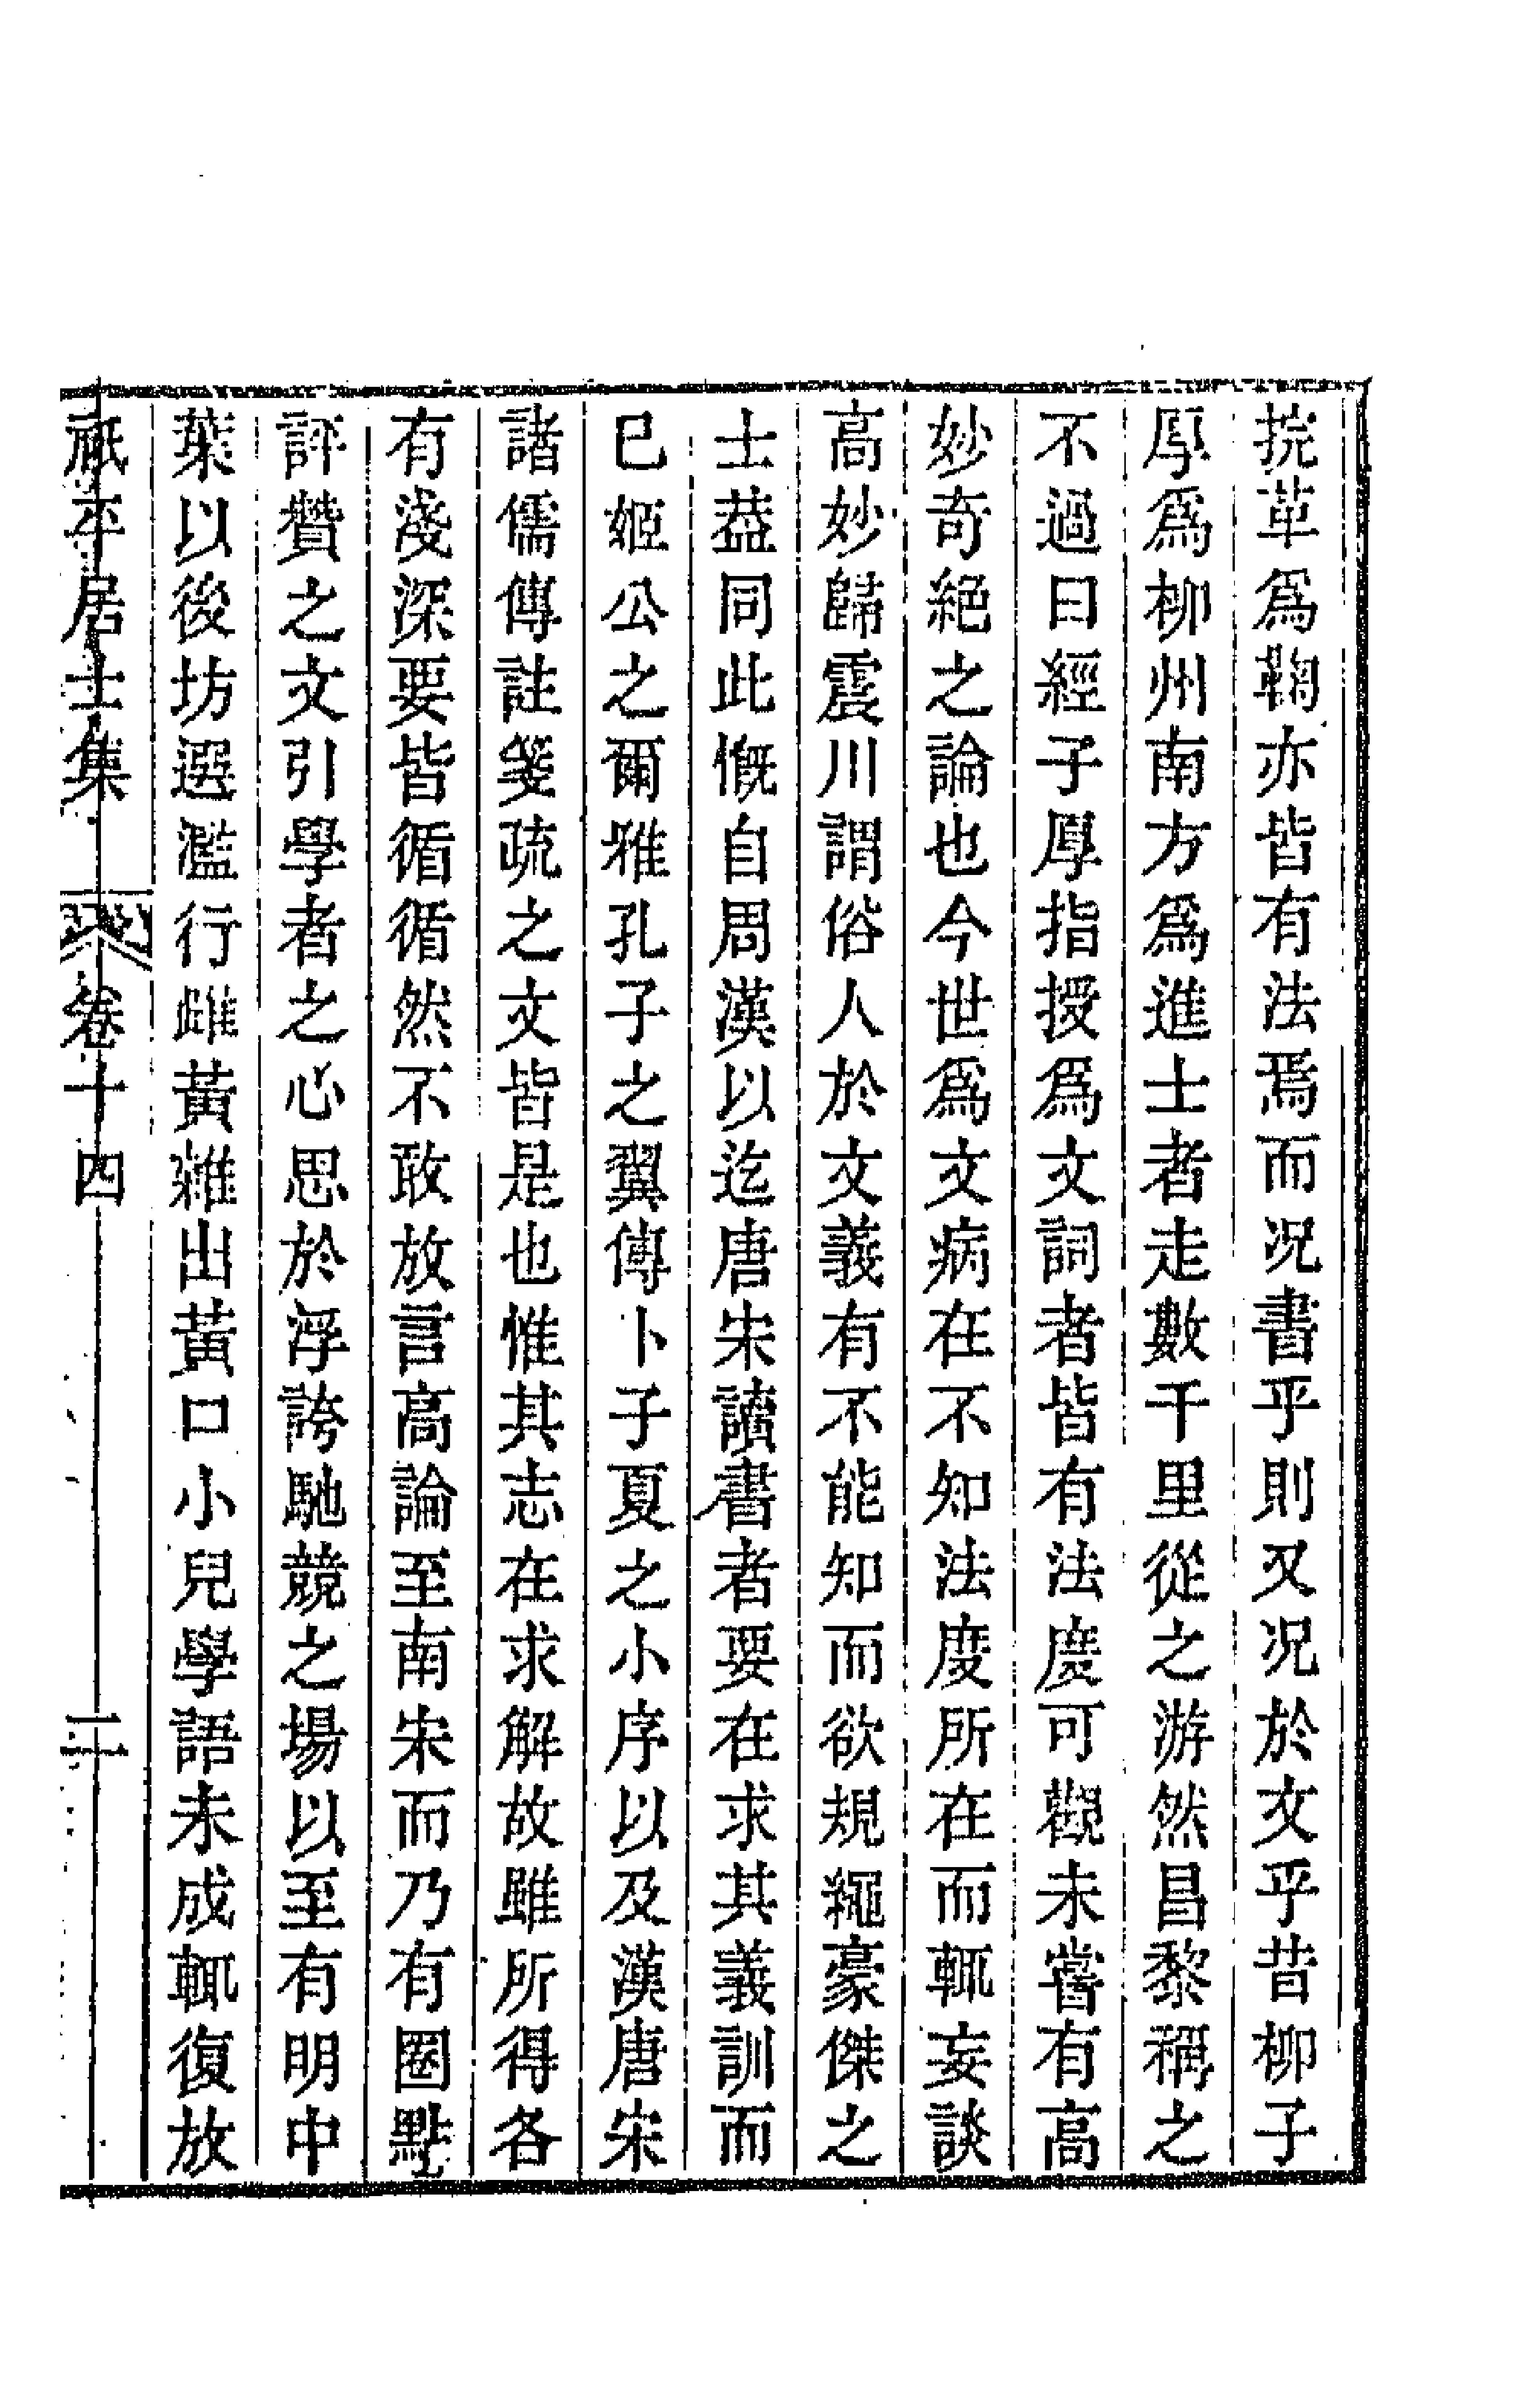 捖革爲鞠亦皆有法焉而况書乎則又况於文乎昔柳子
厚爲柳州南方爲進士者走數千里從之游然昌黎稱之
不過曰經子厚指授爲文詞者皆有法度可觀未嘗有高
妙奇絕之論也今世爲文病在不知法度所在而輒妄談
高妙歸震川謂俗人於文義有不能知而欲規繩豪傑之
士葢同此慨自周漢以迄唐宋讀書者要在求其義訓而
已姬公之爾雅孔子之翼傳卜子夏之小序以及漢唐宋
諸儒傳註箋疏之文皆是也惟其志在求解故雖所得各
有淺深要皆循循然不敢放言高論至南宋而乃有圈點
評贊之文引學者之心思於浮誇馳競之場以至有明中
葉以後坊選濫行雌黃雜出黃口小兒學語未成輒復放
祇平居士集 卷十四 二